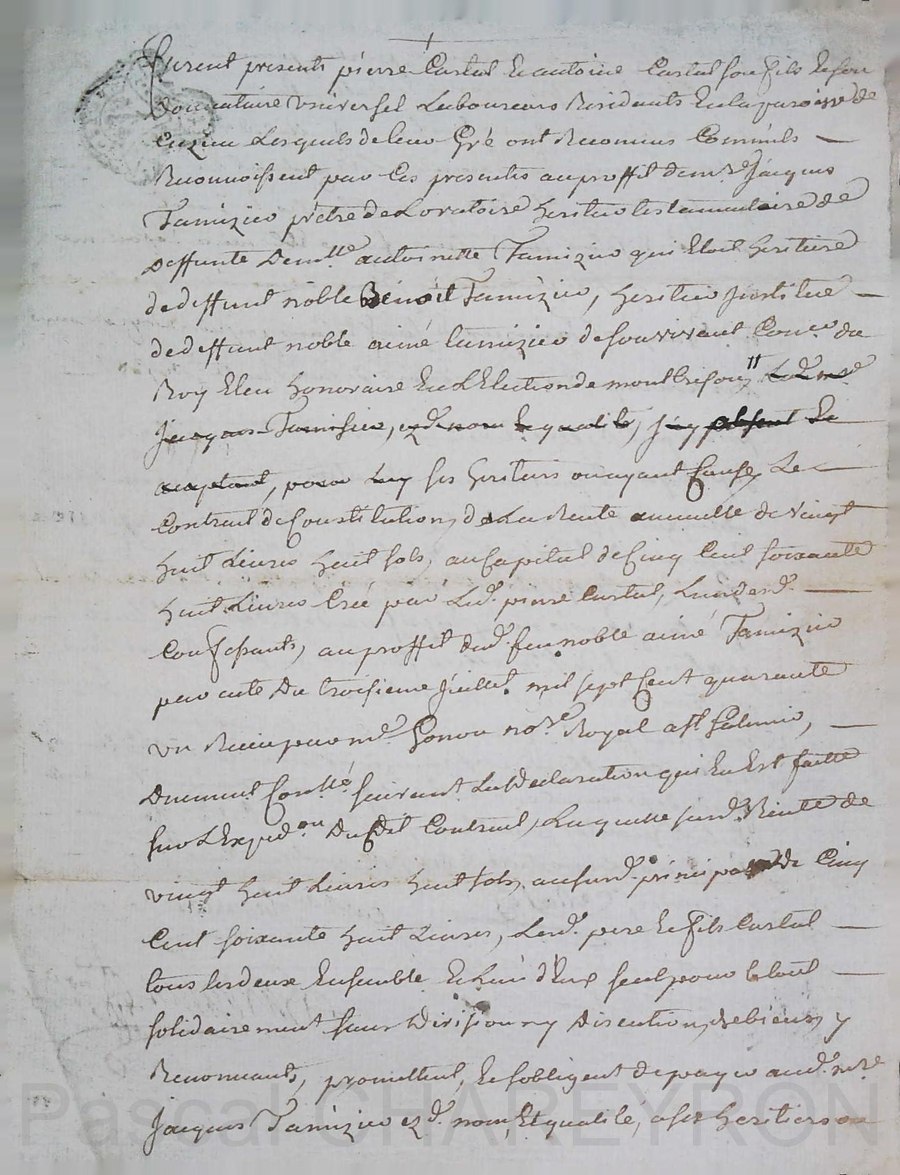 furent presents pierre Cartal Et antoine Cartal son fils Et son
donnataire universel Laboureurs Residents En la paroisse de
Cuzieu Lesquels de leur Gré ont Reconnus Comm'ils
Reconnoissent par Ces presentes au proffit de mre Jacques
Tamizier prêtre de L'oratoire heritier testamentaire de
deffunte Demlle antoinette Tamizier qui Etoit heritiere
de deffunt noble Benoit Tamizier, heritier institué
de deffunt noble aimé tamizier de son vivant Coner du
Roy Eleu honoraire En L'Election de montbrison, Led. mre
Jacques Tamisier, ezd. nom Et qualité, icy absent Et
acceptant, pour Luy ses heritiers ou ayant Cause, Le
Contrait de Constitution, de La Rente annuelle de vingt
huit Livres huit sols, au Capital de Cinq Cent soixante
huit Livres Créé par Led. pierre Cartal, L'un desd.
Confessants, au proffit dud. feu noble aimé Tamizier
par acte Du troisieme Juillet mil sept Cent quarante
un Reçu par me Gonon nore Royal a st Galmier,
Duement Conllé suivant La Declaration qui En Est faitte
sur L'Expedon Dudit Contrait, Laquelle susd. Rente de
vingt huit Livres huit sols, au susd. principal de Cinq
Cent soixante huit Livres, Lesd. pere Et fils Cartal
tous les deux Ensemble Et L'un d'Eux seul pour le tout
solidairement sans Division ny Discution, de biens, y
Renonceants, promettent, Et s'obligent de payer aud. mre
Jacques Tamizier ezd. nom, Et qualité, a ses heritiers ou
Pascal CHAREYRON